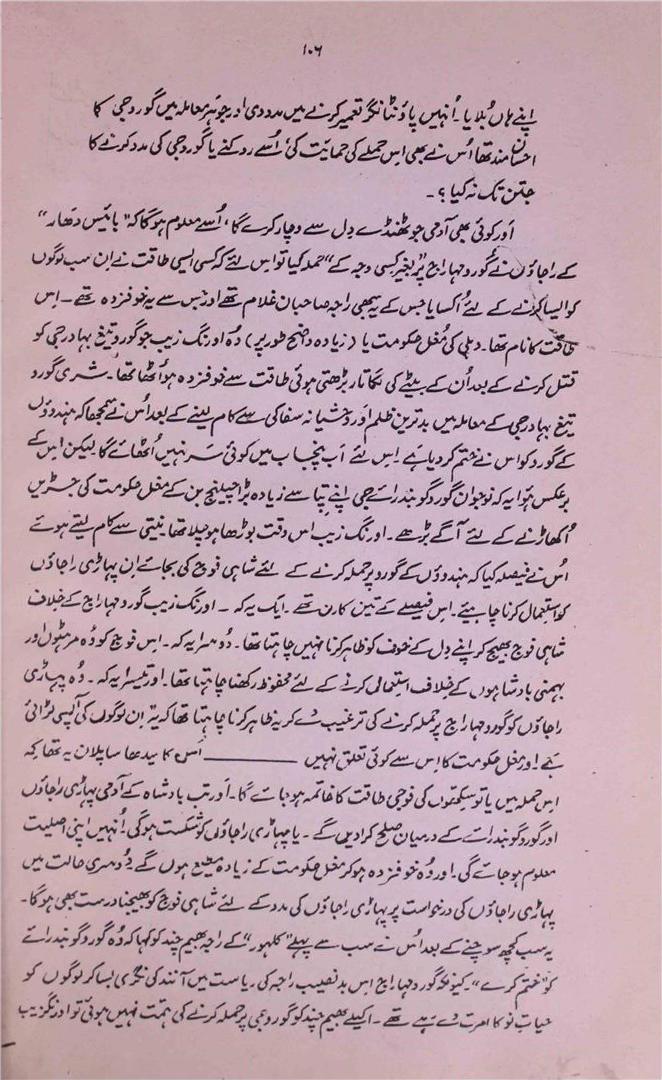 ۱۰۶
اپنے ہاں بُلایا۔ اُنہیں پاؤنٹانگر تعمیر کرنے میں مدد دی اور جو ہر معاملہ میں گوروجی کا
احسان مند تھا اُس نے بھی اس حملے کی حمایت کی، اُسے روکنے یا گوروجی کی مدد کرنے کا
جتن تک نہ کیا؟۔
اَور کوئی بھی آدمی جو ٹھنڈے دِل سے وچار کرے گا، اُسے معلوم ہوگا کہ "بائیس دھار"
کے راجاؤں نے گورو مہاراج پر "بغیر کسی وجہ کے" حملہ کیا تو اس لئے کہ کسی ایسی طاقت نے اِن سب لوگوں
کو ایسا کرنے کے لئے اُکسایا جس کے یہ سبھی راجہ صاحبان غلام تھے اور جس سے یہ خوفزدہ تھے۔ اِس
طاقت کا نام تھا۔ دہلی کی مُغل حکومت یا (زیادہ واضح طور پر) وُہ اورنگ زیب جو گورو تیغ بہادر جی کو
قتل کرنے کے بعد اُن کے بیٹے کی لگاتار بڑھتی ہوئی طاقت سے خوفزدہ ہو اُٹھا تھا۔ شری گورو
تیغ بہادر جی کے معاملہ میں بدترین ظلم اور وحشیانہ سفاکی سے کام لینے کے بعد اُس نے سمجھا کہ ہندوؤں
کے گورو کو اس نے ختم کر دیا ہے۔ اِس لئے اَب پنجاب میں کوئی سَر نہیں اُٹھائے گا لیکن اس کے
برعکس ہُوا یہ کہ نوجوان گورو گوبند رائے جی اپنے پتا سے زیادہ بڑا چیلنج بن کے مغل حکومت کی جڑیں
اُکھاڑنے کے لئے آگے بڑھے۔ اورنگ زیب اس وقت بوڑھا ہو چلا تھا نیتی سے کام لیتے ہوئے
اُس نے فیصلہ کیا کہ ہندوؤں کے گورو پر حملہ کرنے کے لئے شاہی فوج کی بجائے اِن پہاڑی راجاؤں
کو استعمال کرنا چاہیئے۔ اِس فیصلے کے تین کارن تھے۔ ایک یہ کہ۔ اورنگ زیب گورو مہاراج کے خلاف
شاہی فوج بھیج کر اپنے دِل کے خوف کو ظاہر کرنا نہیں چاہتا تھا۔ دُوسرا یہ کہ۔ اس فوج کو وُہ مرہٹوں اور
بہمنی بادشاہوں کے خلاف استعمال کرنے کے لئے محفوظ رکھنا چاہتا تھا۔ اور تیسرا یہ کہ۔ وُہ پہاڑی
راجاؤں کو گورو مہاراج پر حملہ کرنے کی ترغیب دے کر یہ ظاہر کرنا چاہتا تھا کہ یہ اِن لوگوں کی آپسی لڑائی
ہے اور مغل حکومت کا اِس سے کوئی تعلق نہیں ــــــــــــ اُس کا سیدھا سا پلان یہ تھا کہ
اِس حملہ میں یا تو سِکھوں کی فوجی طاقت کا خاتمہ ہو جائے گا۔ اَور تب بادشاہ کے آدمی پہاڑی راجاؤں
اور گورو گوبند رائے کے درمیان صلح کرا دیں گے۔ یا پہاڑی راجاؤں کو شکست ہوگی اُنہیں اپنی اصلیت
معلوم ہو جائے گی۔ اور وُہ خوفزدہ ہو کر مغل حکومت کے زیادہ مطیع ہوں گے۔ دُوسری حالت میں
پہاڑی راجاؤں کی درخواست پر پہاڑی راجاؤں کی مدد کے لئے شاہی فوج کو بھیجنا درست بھی ہوگا۔
یہ سب کچھ سوچنے کے بعد اُس نے سب سے پہلے "کلہور" کے راجہ بھیم چند کو کہا کہ وُہ گورو گوبند رائے
کو "ختم کرے"۔ کیونکہ گورو مہاراج اِس بدنصیب راجہ کی ریاست میں آنند کی نگری بسا کر لوگوں کو
حیاتِ نو کا امرت دے رہے تھے۔ اکیلے بھیم چند کو گوروجی پر حملہ کرنے کی ہمّت نہیں ہوئی تو اورنگزیب